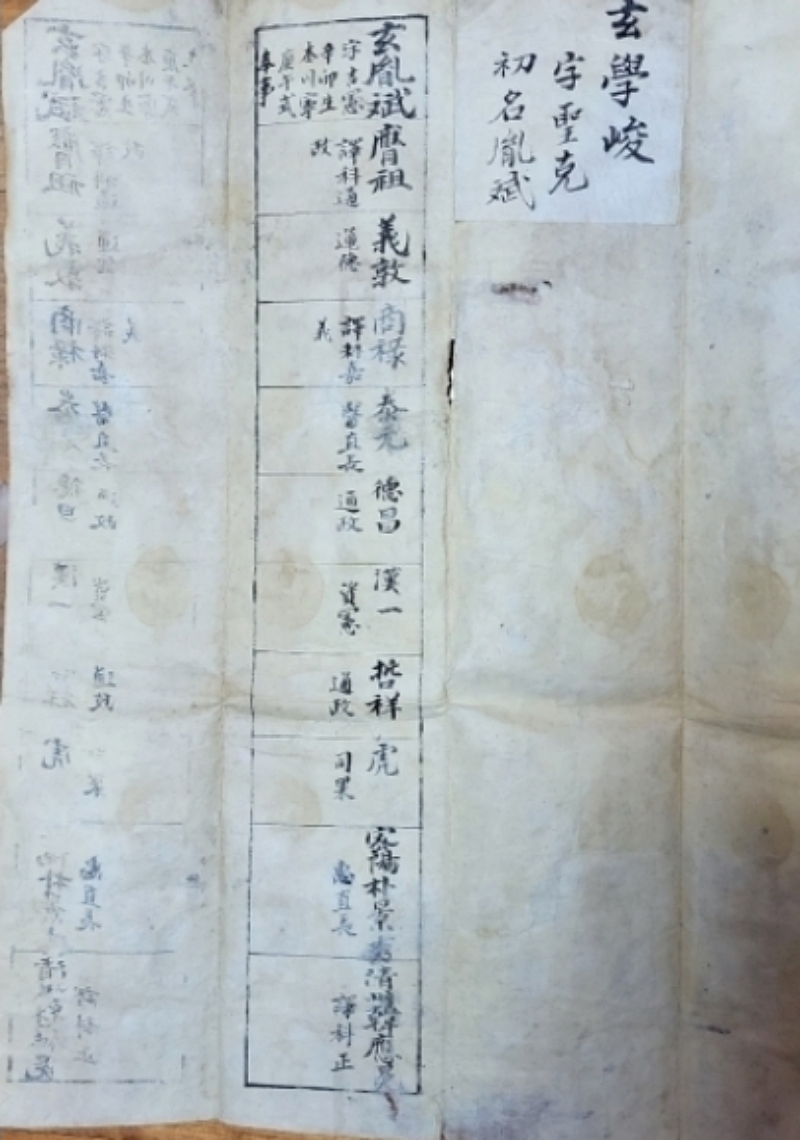 玄學峻
字聖克
初名胤斌
玄胤斌
字吉憲
辛卯生
本川寧
庚午式
本事
曆祖
譯科通
政
義敦
通德
商祿
譯科嘉
義
泰元
醫直長
德昌
通政
漢一
資憲
哲祥
通政
虎
司果
密陽朴景
惠直長
清州韓應
譯科正